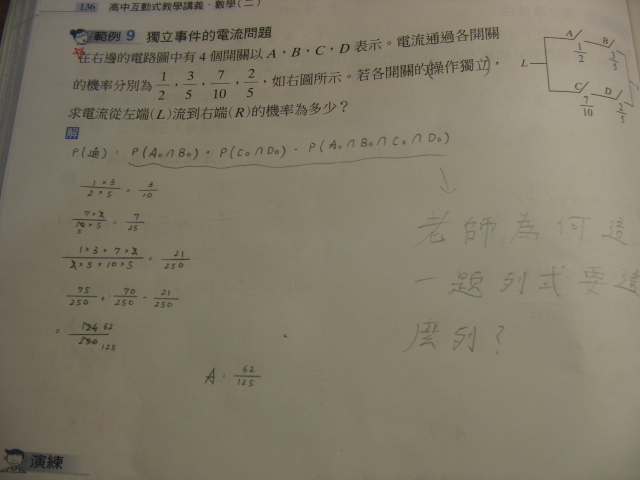 136 高中互動式教學講義．數學(二)
範例 9 獨立事件的電流問題
在右邊的電路圖中有 4 個開關以 A，B，C，D 表示。電流通過各開關
的機率分別為 1/2，3/5，7/10，2/5，如右圖所示。若各開關的操作獨立，
求電流從左端(L)流到右端(R)的機率為多少？
A B
1/2 3/5
L
C D
7/10 2/5
解
P(通) = P(A₀∩B₀) + P(C₀∩D₀) - P(A₀∩B₀∩C₀∩D₀)
1×3/2×5 = 3/10
7×2/10×5 = 7/25
5
1×3×7×2/2×5×10×5 = 21/250
75/250 + 70/250 - 21/250
= 124/250 62/125
A: 62/125
老師為何這
一題列式要這
麼列？
演練